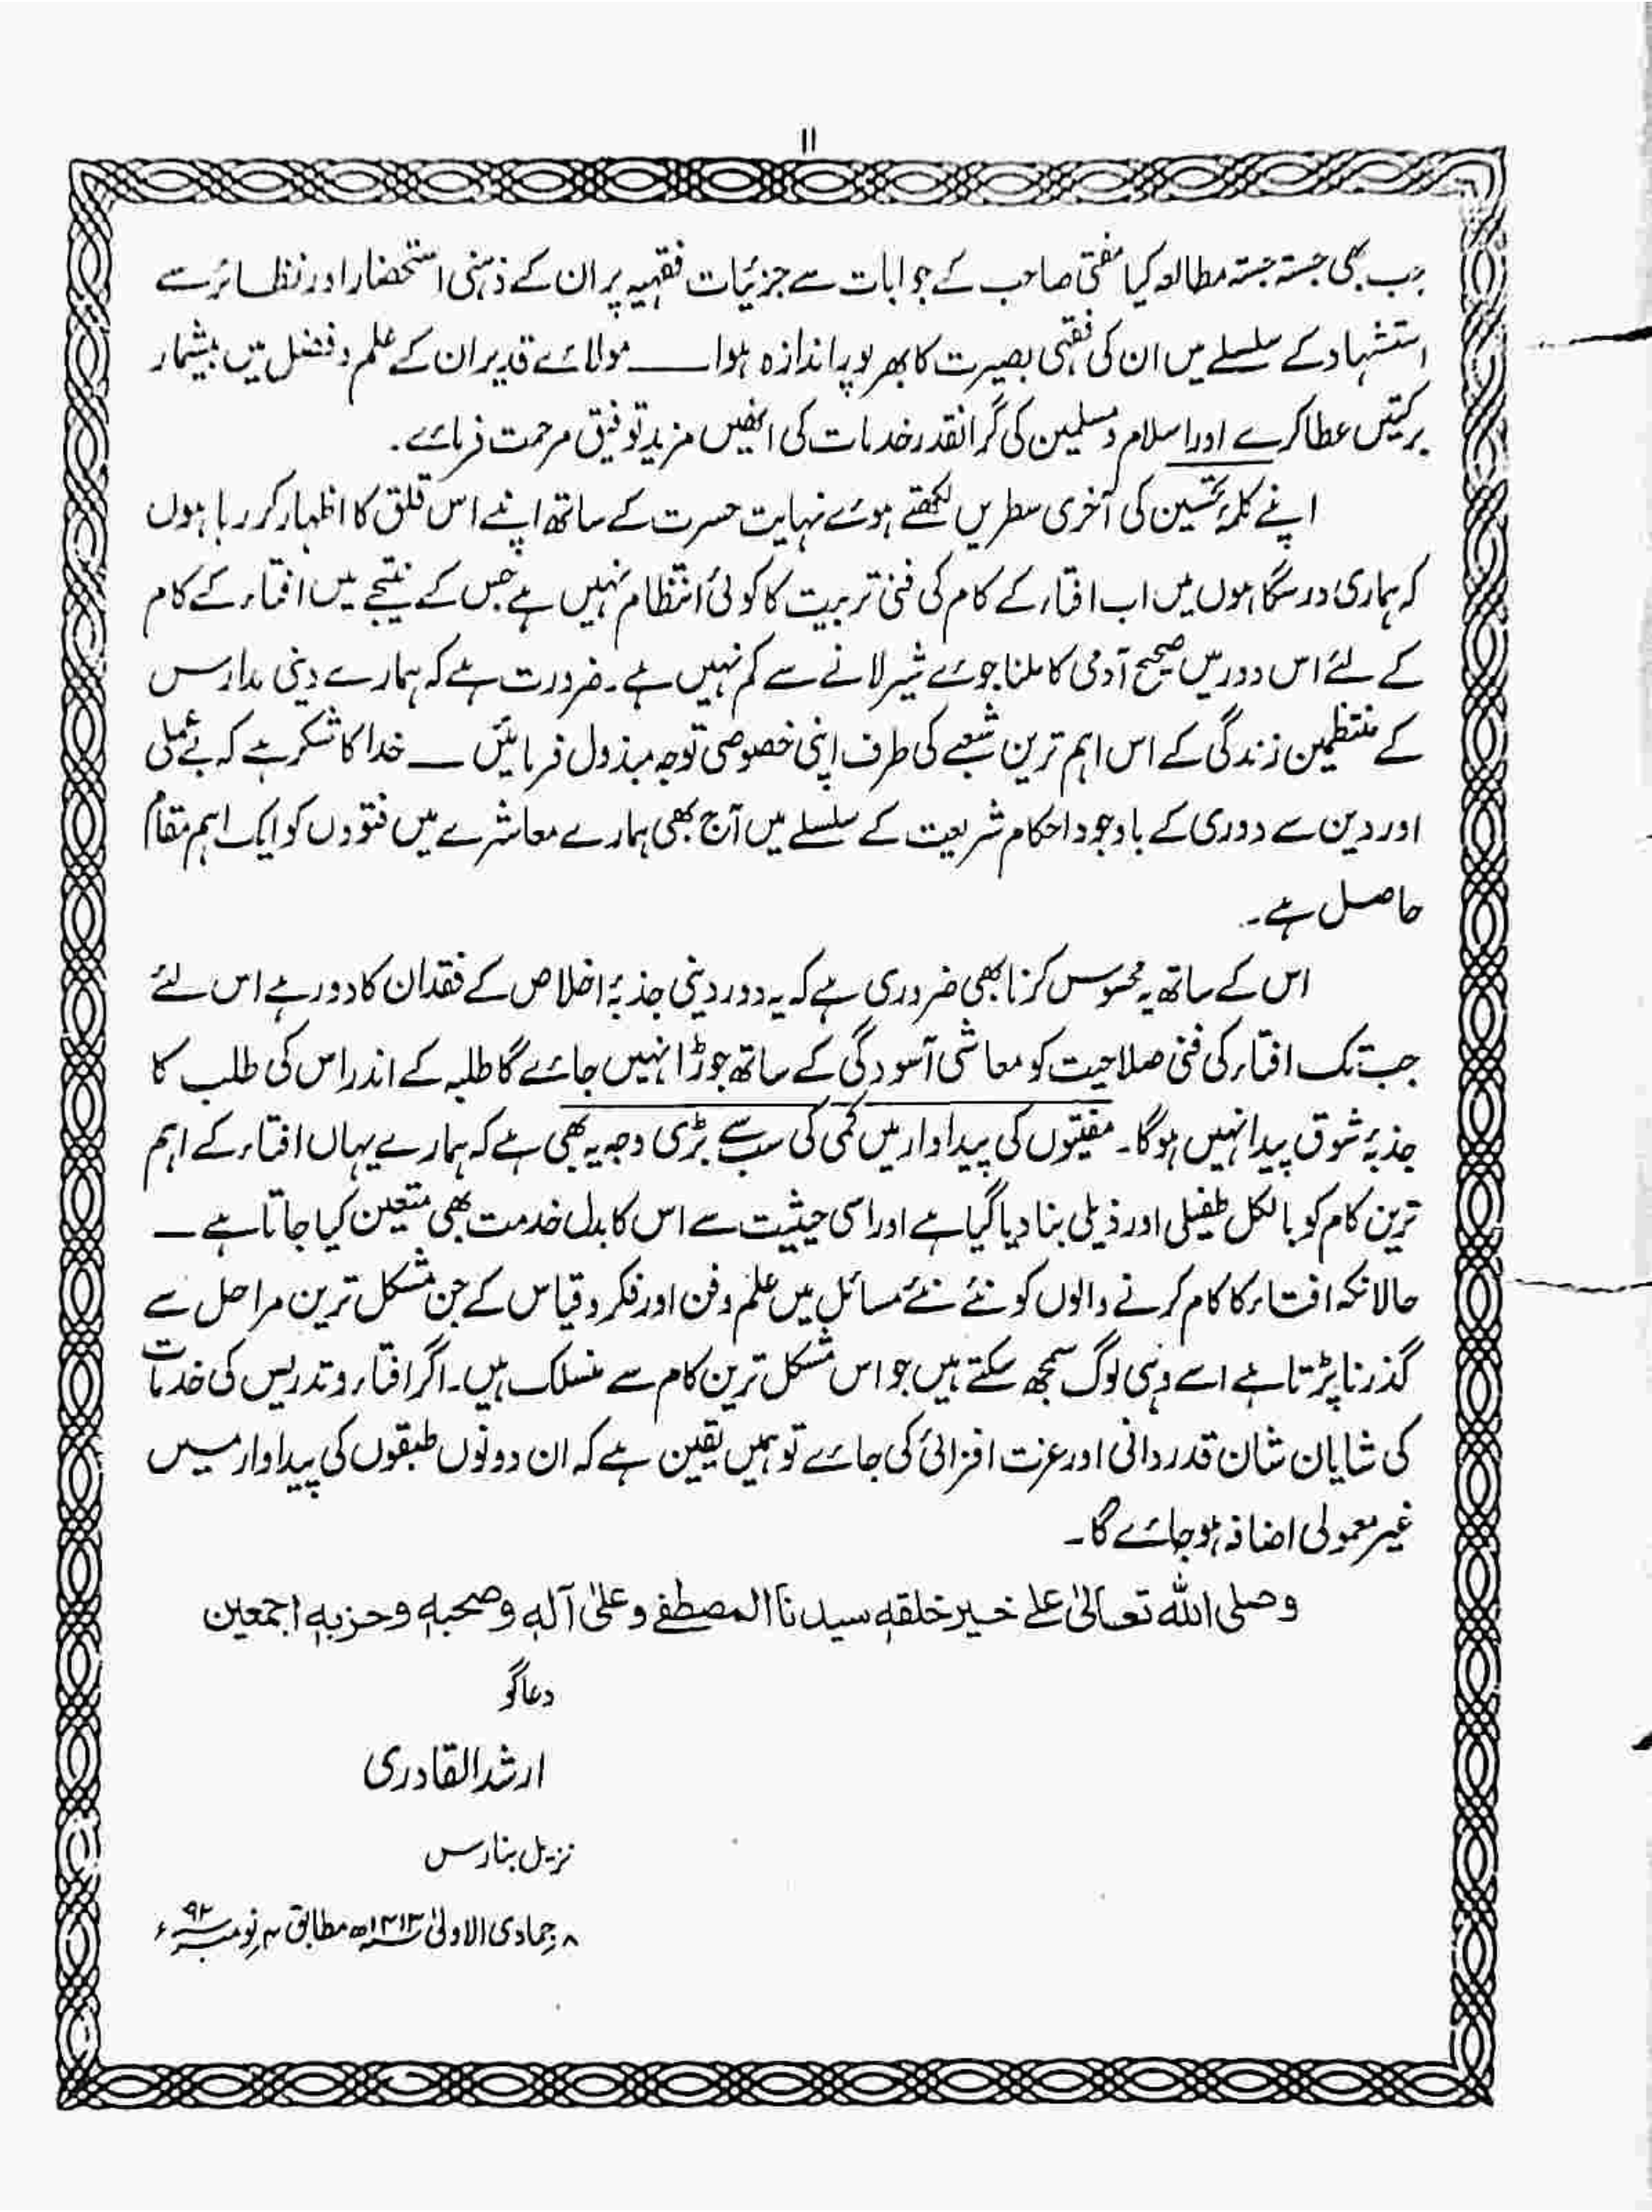 ۱۱
جب بھی جستہ جستہ مطالعہ کیا مفتی صاحب کے جوابات سے جزئیات فقہیہ پر ان کے ذہنی استحضار اور نظائر سے
استشہاد کے سلسلے میں ان کی فقہی بصیرت کا بھر پور اندازہ ہوا ـــــ مولائے قدیر ان کے علم و فضل میں بیشمار
برکتیں عطا کرے اور اسلام و مسلمین کی گرانقدر خدمات کی انھیں مزید توفیق مرحمت فرمائے۔
اپنے کلمۂ تحسین کی آخری سطریں لکھتے ہوئے نہایت حسرت کے ساتھ اپنے اس قلق کا اظہار کر رہا ہوں
کہ ہماری درسگاہوں میں اب افتاء کے کام کی فنی تربیت کا کوئی انتظام نہیں ہے جس کے نتیجے میں افتاء کے کام
کے لئے اس دور میں صحیح آدمی کا ملنا جوئے شیر لانے سے کم نہیں ہے۔ ضرورت ہے کہ ہمارے دینی مدارس
کے منتظمین زندگی کے اس اہم ترین شعبے کی طرف اپنی خصوصی توجہ مبذول فرمائیں ـــ خدا کا شکر ہے کہ بے عملی
اور دین سے دوری کے باوجود احکام شریعت کے سلسلے میں آج بھی ہمارے معاشرے میں فتووں کو ایک اہم مقام
حاصل ہے۔
اس کے ساتھ یہ محسوس کرنا بھی ضروری ہے کہ یہ دور دینی جذبۂ اخلاص کے فقدان کا دور ہے اس لئے
جب تک افتاء کی فنی صلاحیت کو معاشی آسودگی کے ساتھ جوڑا نہیں جائے گا طلبہ کے اندر اس کی طلب کا
جذبۂ شوق پیدا نہیں ہوگا۔ مفتیوں کی پیداوار میں کمی کی سب سے بڑی وجہ یہ بھی ہے کہ ہمارے یہاں افتاء کے اہم
ترین کام کو بالکل طفیلی اور ذیلی بنا دیا گیا ہے اور اسی حیثیت سے اس کا بدل خدمت بھی متعین کیا جاتا ہے ـــ
حالانکہ افتاء کا کام کرنے والوں کو نئے نئے مسائل میں علم و فن اور فکر و قیاس کے جن مشکل ترین مراحل سے
گذرنا پڑتا ہے اسے وہی لوگ سمجھ سکتے ہیں جو اس مشکل ترین کام سے منسلک ہیں۔ اگر افتاء و تدریس کی خدمات
کی شایان شان قدر دانی اور عزت افزائی کی جائے تو ہمیں یقین ہے کہ ان دونوں طبقوں کی پیداوار میں
غیر معمولی اضافہ ہو جائے گا۔
وصلی اللہ تعالیٰ علے خیر خلقہٖ سیدنا المصطفےٰ وعلیٰ آلہٖ وصحبہٖ وحزبہٖ اجمعین
دعا گو
ارشد القادری
نزیل بنارس
۸ جمادی الاولیٰ ۱۴۱۳ھ مطابق ۴ نومبر ۹۲ء